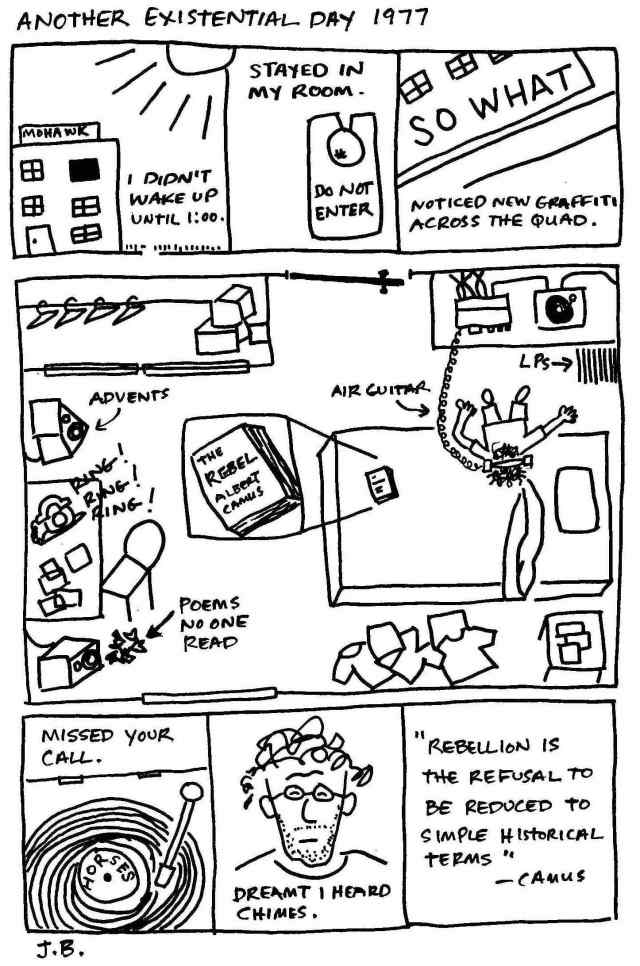 ANOTHER EXISTENTIAL DAY 1977
MOHAWK
I DIDN'T
WAKE UP
UNTIL 1:00.
STAYED IN
MY ROOM.
DO NOT
ENTER
SO WHAT
NOTICED NEW GRAFFITI
ACROSS THE QUAD.
LPs→
AIR GUITAR
ADVENTS
THE
REBEL
ALBERT
CAMUS
RING!
RING!
RING!
POEMS
NO ONE
READ
MISSED YOUR
CALL.
HORSES
DREAMT I HEARD
CHIMES.
"REBELLION IS
THE REFUSAL TO
BE REDUCED TO
SIMPLE HISTORICAL
TERMS"
—CAMUS
J.B.